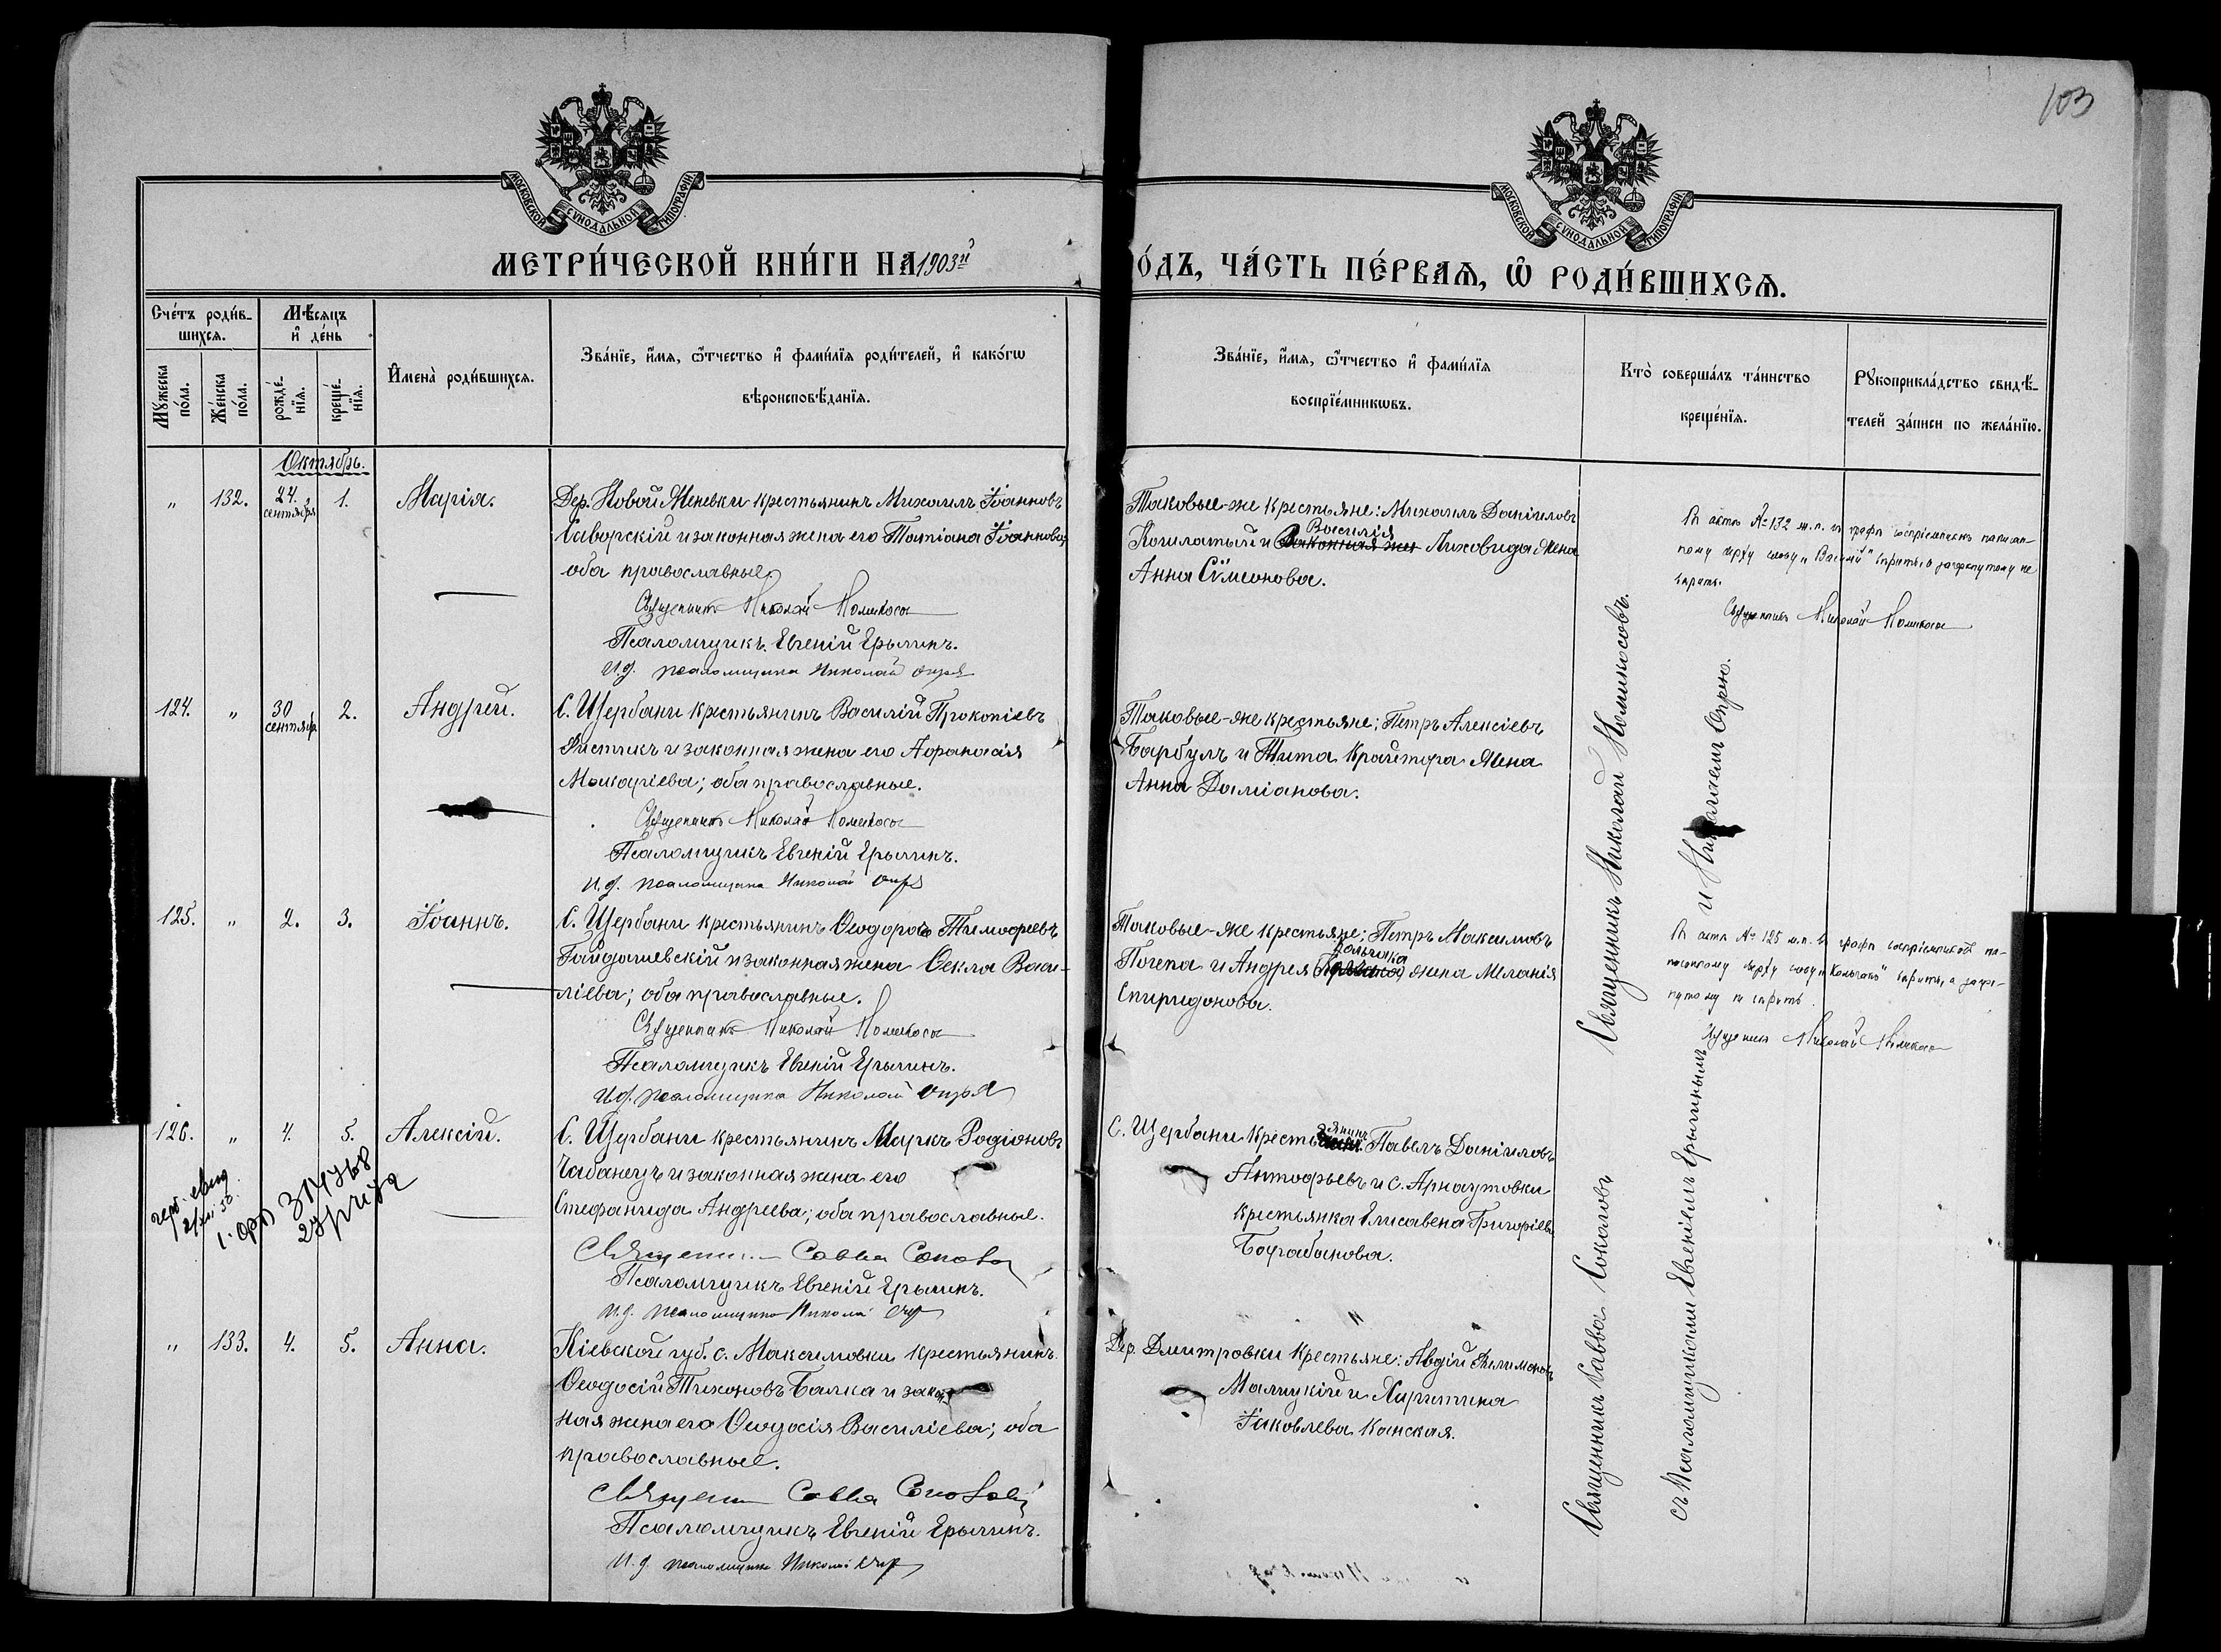 103
МОСКОВСКОЙ СУНОДАЛЬНОЙ ТИПОГРАФІИ
МОСКОВСКОЙ СУНОДАЛЬНОЙ ТИПОГРАФІИ
МЕТРИ́ЧЕСКОЙ КНИ́ГИ НА 1903й
О́ДЪ, ЧА́СТЬ ПЕ́РВАѦ, Ѡ҆ РОДИ́ВШИХСѦ.
Сче́тъ роди́в-
шихсѧ.
Мѣ́сѧцъ
и҆ де́нь
Мꙋ́жеска
по́ла.
Же́нска
по́ла.
рожде́-
нїѧ.
креще́-
нїѧ.
И҆мена̀ роди́вшихсѧ.
Зва́нїе, и҆́мѧ, ѻ҆́тчество и҆ фами́лїѧ роди́телей, и҆ како́гѡ
вѣроисповѣ́данїѧ.
Зва́нїе, и҆́мѧ, ѻ҆́тчество и҆ фами́лїѧ
воспрїе́мникѡвъ.
Кто̀ соверша́лъ та́инство
креще́нїѧ.
Рꙋкоприкла́дство свидѣ́-
телей за́писи по жела́нїю.
Октябрь.
„ 132. 24. сентября 1. Марія.
Дер. Новой Меневки крестьянинъ Михаилъ Іоанновъ
Саворскій и законная жена его Татіана Іоаннова,
оба православные.
Священникъ Николай Номикосов
Псаломщикъ Евгеній Ерыгинъ.
И.д. псаломщика Николай Опря
Таковые-же крестьяне: Михаилъ Даніиловъ
Василія
Когилатый и Законная жен Лиховида жена
Анна Сѵмеонова.
Въ актѣ № 132 ж.п. въ графѣ воспріемниковъ написан-
ному верху слову „Василій" вѣрить, а зачеркнутому не
вѣрить.
Священникъ Николай Номикосов
124. „ 30 сентяб. 2. Андрей.
С. Щербани крестьянинъ Василій Прокопіевъ
Фистикъ и законная жена его Афанасія
Макаріева; оба православные.
Священникъ Николай Номикосов
Псаломщикъ Евгеній Ерыгинъ.
И.д. псаломщика Николай Опря
Таковые-же крестьяне; Петръ Алексіевъ
Барбулъ и Тита Крайтора жена
Анна Даміанова.
125. „ 2. 3. Іоаннъ.
С. Щербани крестьянинъ Ѳеодоръ Тимофеевъ
Гайдашевскій и законная жена Ѳекла Васи-
ліева; оба православные.
Священникъ Николай Номикосов
Псаломщикъ Евгеній Ерыгинъ.
И.д. псаломщика Николай Опря
Таковые-же крестьяне; Петръ Максимовъ
Кольчака
Погепа и Андрея жена Меланія
Спиридонова.
Въ актѣ № 125 м.п. въ графѣ воспріемниковъ на-
писанному верху слову „Кольчакъ" вѣрить, а зачер-
кнутому не вѣрить.
Священникъ Николай Номикосов
126. „ 4. 5. Алексій.
314768
С. Щербани крестьянинъ Маркъ Родіоновъ
Чабанецъ и законная жена его
Стефанида Андреева; оба православные.
Священникъ Савва Соколов
Псаломщикъ Евгеній Ерыгинъ.
И.д. псаломщика Николай Опря
С. Щербани крестьянинъ Павелъ Даніиловъ
Антофьевъ и с. Арнаутовки
крестьянка Елисавета Григоріева
Барабанова.
„ 133. 4. 5. Анна.
Кіевской губ. с. Максимовки крестьянинъ
Ѳеодосій Тихоновъ Балка и закон-
ная жена его Ѳеодосія Василіева; оба
православные.
Священник Савва Соколов
Псаломщикъ Евгеній Ерыгинъ.
И.д. псаломщика Николай Опря
Дер. Дмитровки крестьяне: Авдій Филимоновъ
Малицкій и Харитина
Іаковлева Канская.
Священникъ Николай Номикосовъ.
Священникъ Савва Соколовъ
съ Псаломщиками Евгеніемъ Ерыгинымъ
и Николаемъ Опрею.